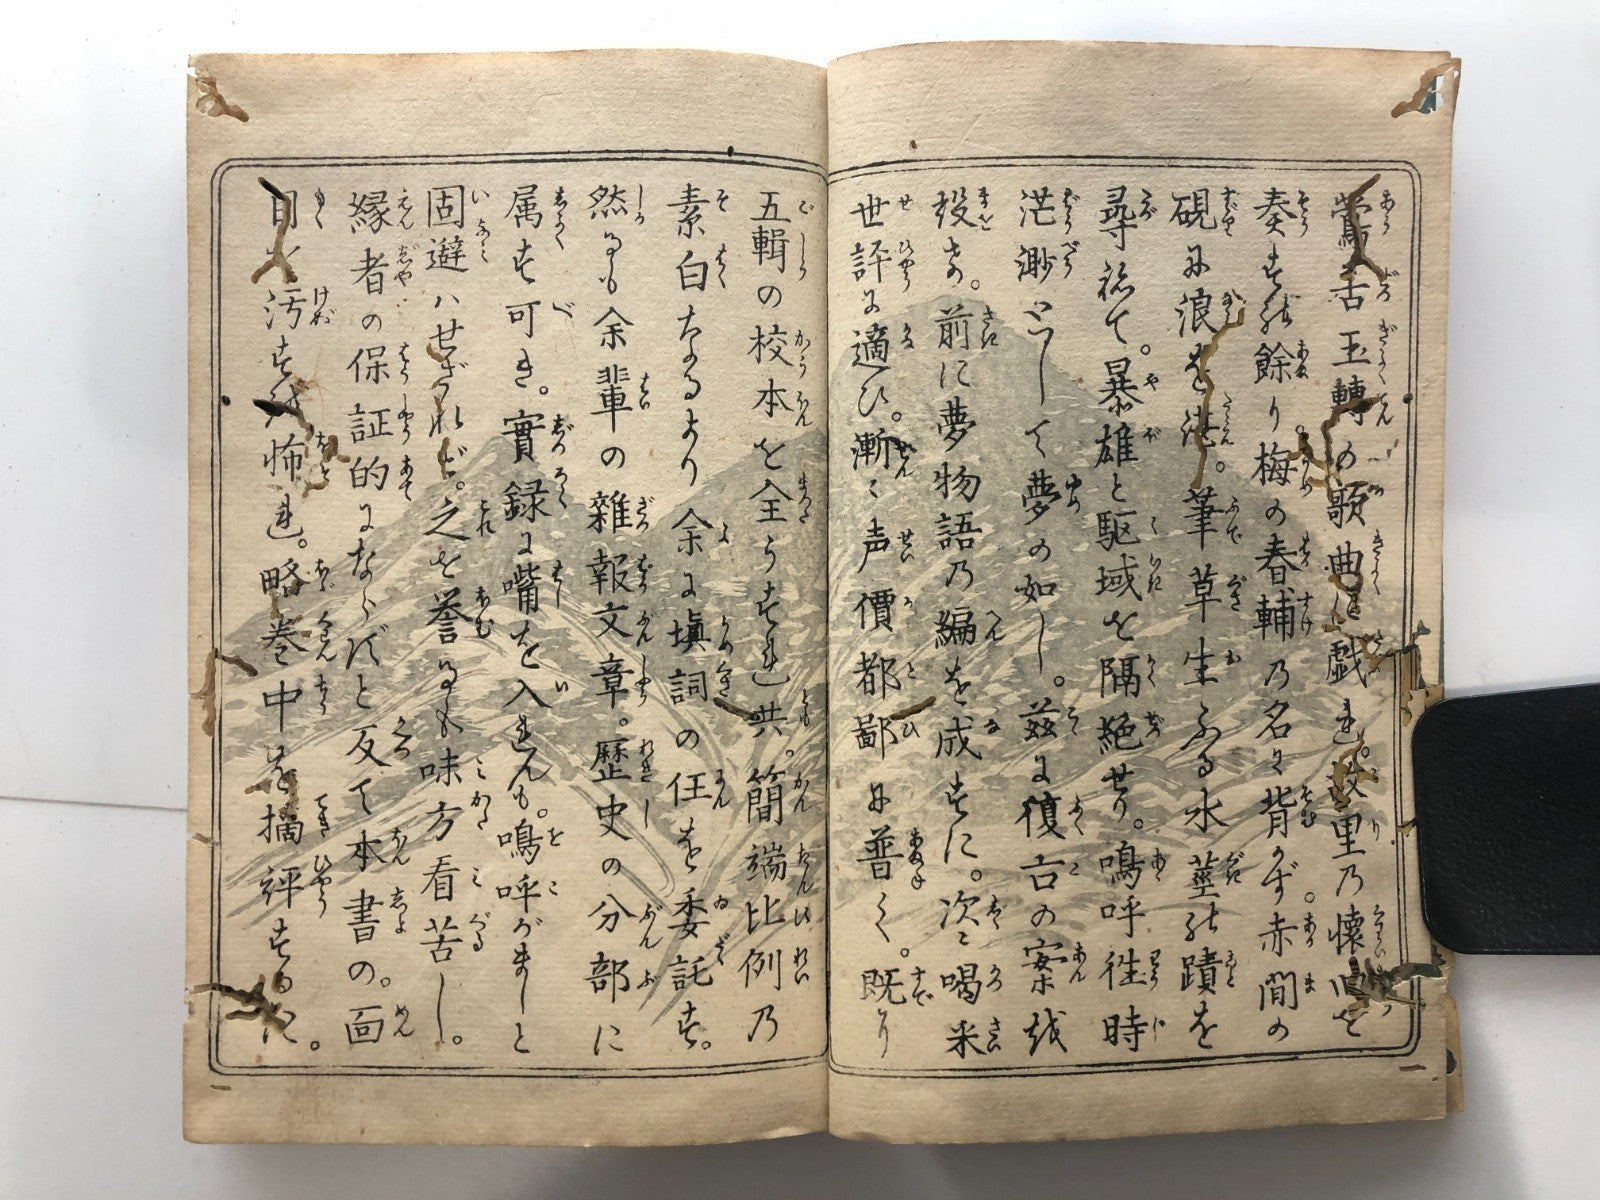 鶯舌玉轉の歌曲に戯れ。故里乃懐旧を
奏する餘り梅の春輔乃名に背かず。赤間の
硯に浪を湛。筆草生ふる水莖の蹟を
尋ねて。暴雄と駆域を隔絶せり。嗚呼徃時
茫渺として夢の如し。茲に復古の案を
設き。前に夢物語乃編を成すに。次に喝采
世評に適ひ。漸々声價都鄙に普く。既り
五輯の校本を全うすれ共。簡端比例乃
素白なるより余に填詞の任を委託す。
然るも余輩の雑報文章。歴史の分部に
属す可き。實録に嘴を入れんも。嗚呼がましと
固避ハせざれど。之を誉るも味方看苦し。
縁者の保証的にならずと反て本書の。面
目を汚すを怖れ。略巻中を摘評するに。